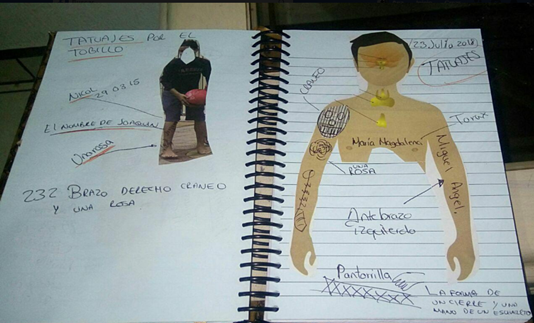 TATUAJES POR EL
TOBILLO
Nicol
29 03 15
El NOMBRE DE JOAQUIN
Unarosa
232 BRAZO DERECHO CRANEO
Y UNA ROSA
(23 Julio 2018)
TATUAJES
CRANEO
Torax
Maria Magdalena
UNA
ROSA
Miguel Angel.
Antebrazo
Izquierdo
Pantorrilla
LA FORMA DE
UN CIERRE Y UNA
MANO DE UN